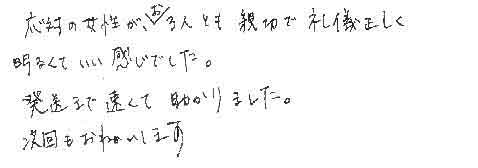 応対の女性が、お2人とも 親切で礼儀正しく
明るくていい感じでした。
発送まで速くて助かりました。
次回もおねがいします